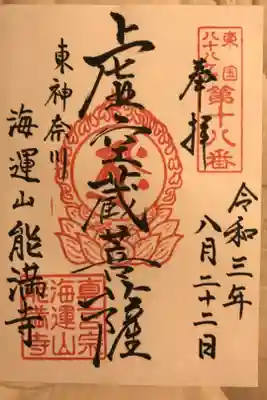 東国
八十八ヵ所
第十八番
奉拝
令和三年
八月二十二日
虚空蔵菩薩
東神奈川
海運山能満寺
真言宗
海運山
能満寺